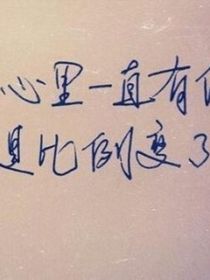 心里一直有
是比例变了